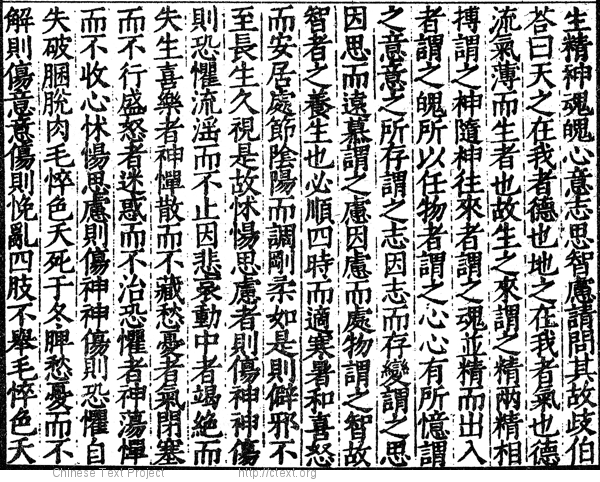 生精神魂魄心意志思智慮請問其故歧伯
荅曰天之在我者德也地之在我者氣也德
流氣薄而生者也故生之來謂之精兩精相
搏謂之神隨神往來者謂之魂並精而出入
者謂之魄所以任物者謂之心心有所憶謂
之意意之所存謂之志因志而存變謂之思
因思而遠慕謂之慮因慮而處物謂之智故
智者之養生也必順四時而適寒暑和喜怒
而安居處節陰陽而調剛柔如是則僻邪不
至長生久視是故怵惕思慮者則傷神神傷
則恐懼流淫而不止因悲哀動中者竭絕而
失生喜樂者神憚散而不藏愁憂者氣閉塞
而不行盛怒者迷惑而不治恐懼者神蕩憚
而不收心怵惕思慮則傷神神傷則恐懼自
失破䐃脫肉毛悴色夭死于冬脾愁憂而不
解則傷意意傷則悗亂四肢不舉毛悴色夭
Chinese Text Project
http://ctext.org